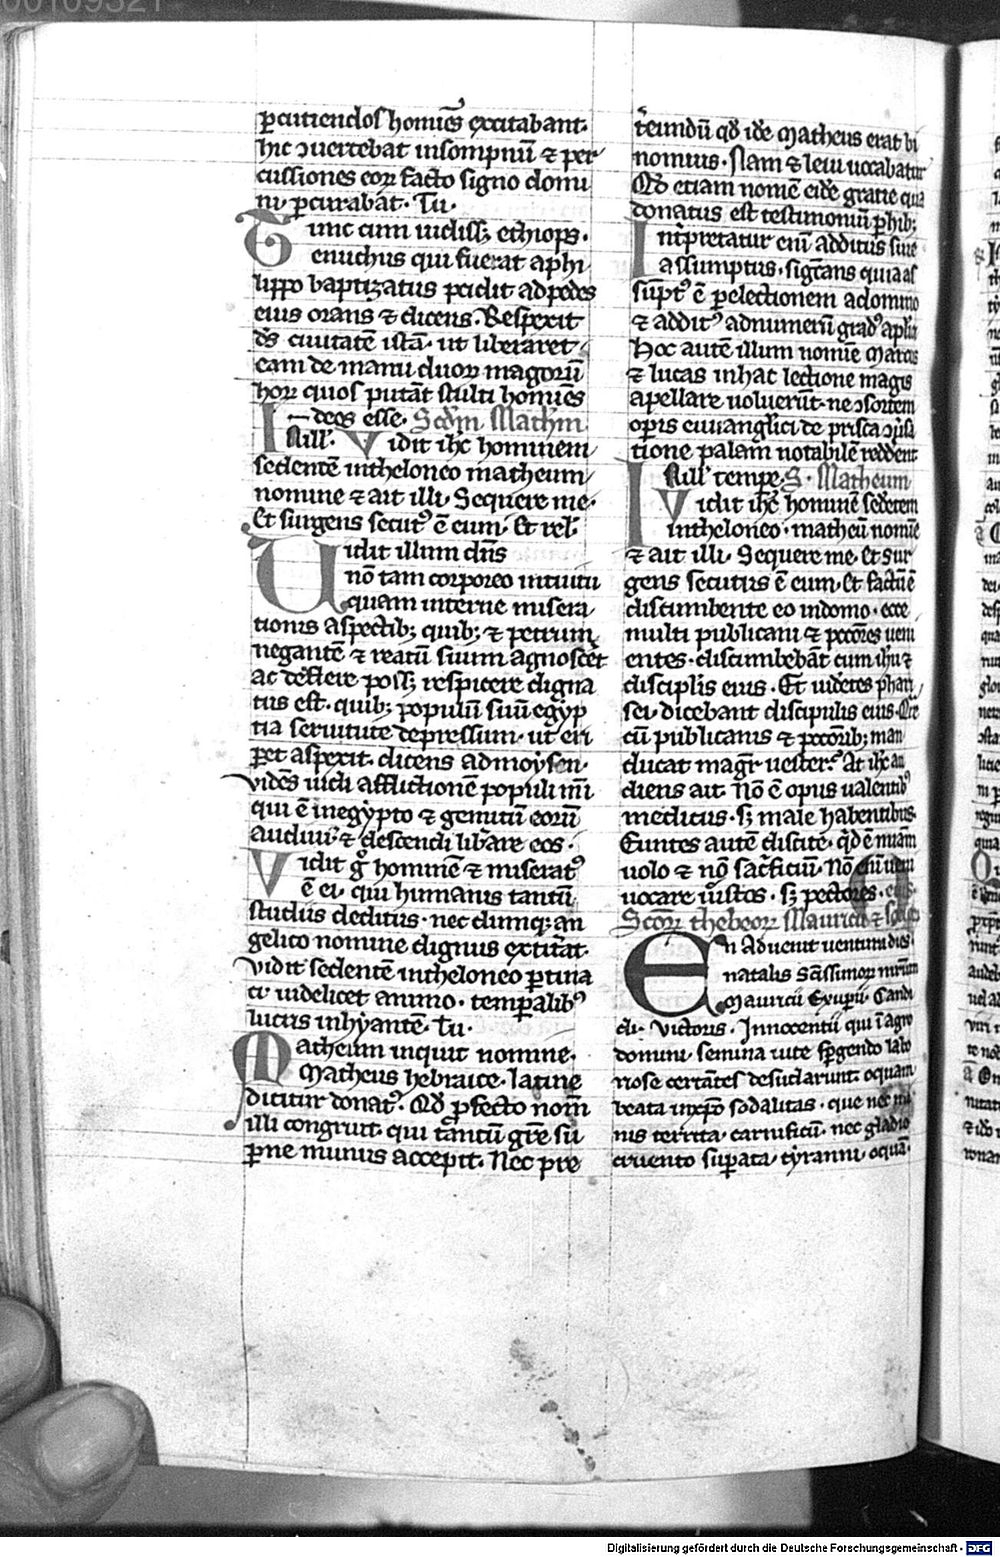 00109321
ꝑcutiendoſ homīes excitabant.
hic ↄuertebat inſompniū ⁊ per
cuſſiones eoꝝ facto ſigno domi
ni ꝑcurabāt. Tu.
Tunc cum uidiſſꝫ ethiops.
enuchus qui fuerat aphi
lippo baptizatus pcidit adpedes
eius orans ⁊ dicens. Reſpexit
d̄s ciuitatē iſtā. ut liberaret
eam de manu duoꝝ magorū
hoꝝ quoſ putāt ſtulti homīes
deos eſſe. Scd̄m Math̄m
In ill̕. Vidit ih̄c hominem
ſedentē intheloneo matheum
nomine ⁊ ait illi. Sequere me.
Et ſurgens ſecutꝰ ē eum. Et rel̕.
Uidit illum dn̄s
nō tam corporeo intuitu
quam interne miſera
tionis aſpectibꝫ quibꝫ ⁊ petrum
negantē ⁊ reatū ſuum agnoſcēt
ac deflere poſſꝫ reſpicere digna
tus eſt. quibꝫ populū ſuū egyp
tia ſeruitute depreſſum. ut eri
ꝑet aſpexit. dicens admoyſen.
Vidēs uidi afflictionē populi mī
qui ē inegypto ⁊ gemitū eorū
audiui. ⁊ deſcendi libare eos.
Vidit g̊ hominē ⁊ miſeratꝰ
ē ei. qui humanis tantū
ſtudiis deditus. nec dumqꝫ an
gelico nomine dignus extiterat.
Vidit ſedentē intheloneo ꝑtina
ci uidelicet animo. temꝑalibꝰ
lucris inhyantē. Tu.
Matheum inquit nomine.
Matheus hebraice. latine
dicitur donatꝰ. Qd̄ ꝓfecto nom̄
illi congruit. qui tantū gr̄e ſu
ꝑne munus accepit. Nec pre
teundū qd̄ ide Matheus erat bi
nomius. Nam ⁊ leui uocabatur
Qd̄ etiam nomē eidē gratie qua
donatus eſt teſtimoniū ꝑhibꝫ
Int̄pretatur eni additus ſiue
aſſumptus. ſig̅cans quia aſ
ſūptꝰ ē ꝑ electionem adomino
⁊ additꝰ adnumerū gradꝰ apl̄i
Hoc autē illum nomīe Marcus
⁊ lucas inhac lectione magis
apellare uoluerūt. ne ↄſortem
oꝑis euuangl̄ici de priſca ↄūſa
tione palam notabilē redderēt
In ill̕ tempe. S. Matheum
Vidit ih̄c hominē ſedētem
intheloneo. matheū nomīe
⁊ ait illi. Sequere me. Et ſur
gens ſecutus ē eum. Et factū ē
diſcumbente eo indomo. ecce
multi publicani ⁊ pcc̄ores ueni
entes. diſcumbebāt cum ih̄u ⁊
diſciplis eius. Et uidētes phari
ſei. dicebant diſcipulis eius. Qr̄e
cū publicanis ⁊ pcc̄orībꝫ man
ducat mag̅r ueſter? At ih̄c au
diens ait. Nō ē opus ualentibꝰ
medicus. ſꝫ male habentibus.
Euntes autē diſcite. qd̄ ē mīam
uolo ⁊ nō ſac̄ficiū. Nō eni ueni
uocare iuſtos. ſꝫ peccōres.
Scōꝝ thebeoꝝ Mauricii ⁊
En aduenit uenerandus dies.
natalis ſāſſimoꝝ mr̄um
Mauricii Exuperii. Candi
di. Victoris. Innocentii qui ī agro
domini ſemina uite ſpgendo labo
rioſe certātes deſudarunt. oquam
beata inxp̄o ſodalitas. que nec mi
nis territa. carnificū. nec gladio
cruento ſuꝑata tyranni. oquā
Digitalisierung gefördert durch die Deutsche Forschungsgemeinschaft - DFG